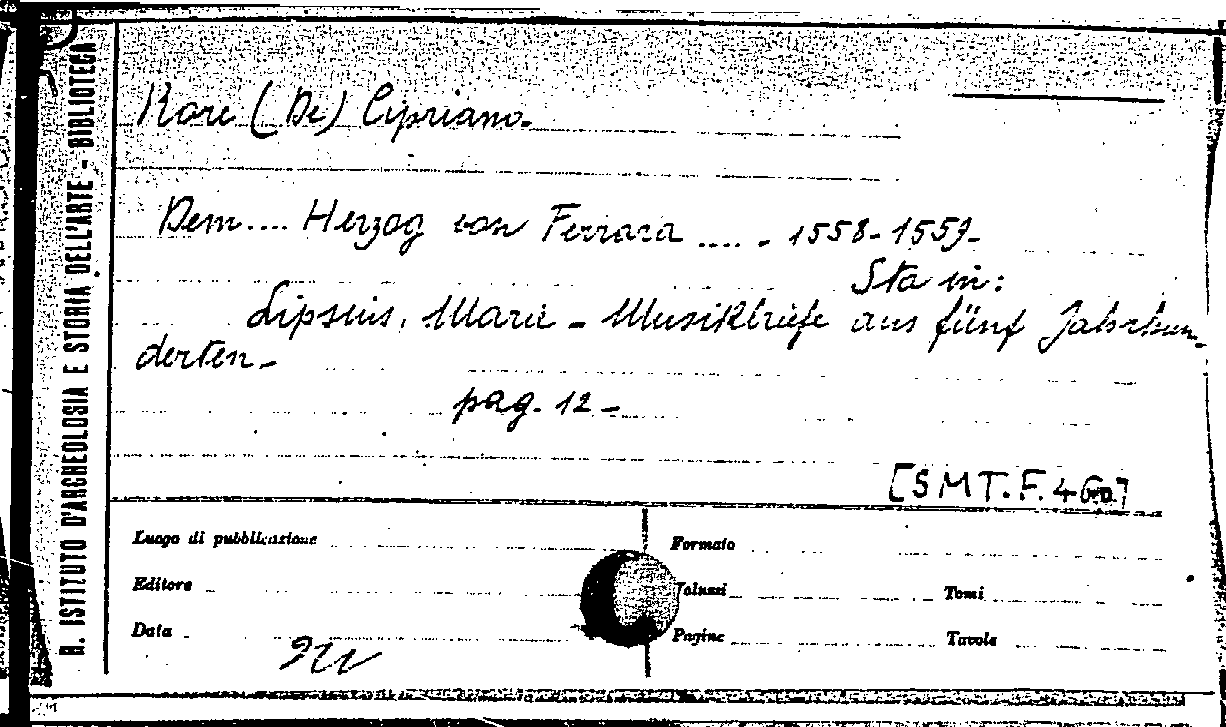 R. ISTITUTO D'ARCHEOLOGIA E STORIA DELL'ARTE - BIBLIOTECA
Rore (De) Cipriano.
Dem.... Herzog von Ferrara .... - 1558-1559-
Sta in:
Lipsius, Marie - Musikbriefe aus fünf Jahrhun-
derten -
pag. 12 -
[SMT.F.46a]
Luogo di pubblicazione
Formato
Editore
Volumi
Tomi
Data
Pagine
Tavole